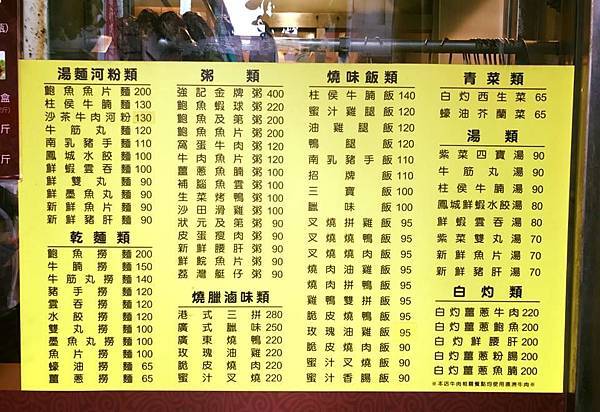 湯麵河粉類
鮑魚魚片麵 200
柱侯牛腩麵 130
沙茶牛肉河粉 130
牛筋丸麵 120
南乳豬手麵 110
鳳城水餃麵 100
鮮蝦雲吞麵 100
鮮雙丸麵 90
鮮墨魚丸麵 90
新鮮魚片麵 90
新鮮豬肝麵 90
乾麵類
鮑魚撈麵 200
牛腩撈麵 150
牛筋丸撈麵 140
豬手撈麵 120
雲吞撈麵 120
水餃撈麵 120
雙丸撈麵 100
墨魚丸撈麵 100
魚片撈麵 100
蠔油撈麵 65
薑蔥撈麵 65
粥類
強記金牌粥 400
鮑魚蝦球粥 220
鮑魚及第粥 200
鮑魚魚片粥 200
窩蛋牛肉粥 120
牛肉魚片粥 120
薑蔥魚腩粥 100
補腦魚雲粥 100
生菜烤鴨粥 100
沙田滑雞粥 100
狀元及第粥 90
皮蛋瘦肉粥 90
新鮮腰肝粥 90
新鮮魚片粥 90
荔灣艇仔粥 90
燒臘滷味類
港式三拼 280
廣式臘味 250
廣東燒鴨 220
玫瑰油雞 220
脆皮燒肉 220
蜜汁叉燒 220
燒味飯類
柱侯牛腩飯 140
蜜汁雞腿飯 120
油雞腿飯 120
鴨腿飯 120
南乳豬手飯 110
招牌飯 110
三寶飯 100
臘味飯 100
叉燒拼雞飯 95
叉燒燒鴨飯 95
叉燒燒肉飯 95
燒肉油雞飯 95
燒肉拼鴨飯 95
雞鴨雙拼飯 95
脆皮燒鴨飯 95
玫瑰油雞飯 95
脆皮燒肉飯 90
蜜汁叉燒飯 90
蜜汁香腸飯 90
青菜類
白灼西生菜 65
蠔油芥蘭菜 65
湯類
紫菜四寶湯 90
牛筋丸湯 90
柱侯牛腩湯 90
鳳城鮮蝦水餃湯 80
鮮蝦雲吞湯 80
紫菜雙丸湯 70
新鮮魚片湯 70
新鮮豬肝湯 70
白灼類
白灼薑蔥牛肉 220
白灼薑蔥鮑魚 200
白灼鮮腰肝 200
白灼薑蔥粉腸 200
白灼薑蔥魚腩 200
※本店牛肉相關餐點均使用澳洲牛肉※